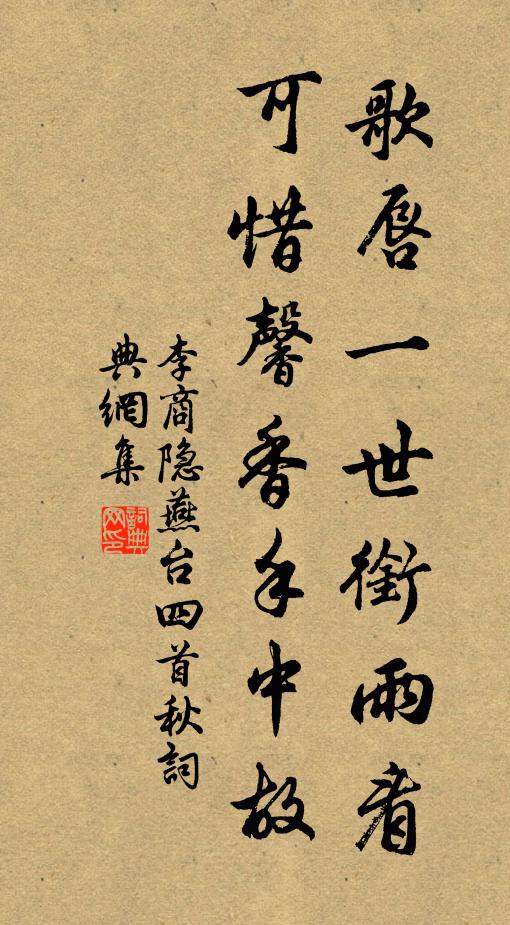 歌唇一世銜雨看
可惜馨香手中故
李商隐燕台四首秋詞
典網集
詞典网印